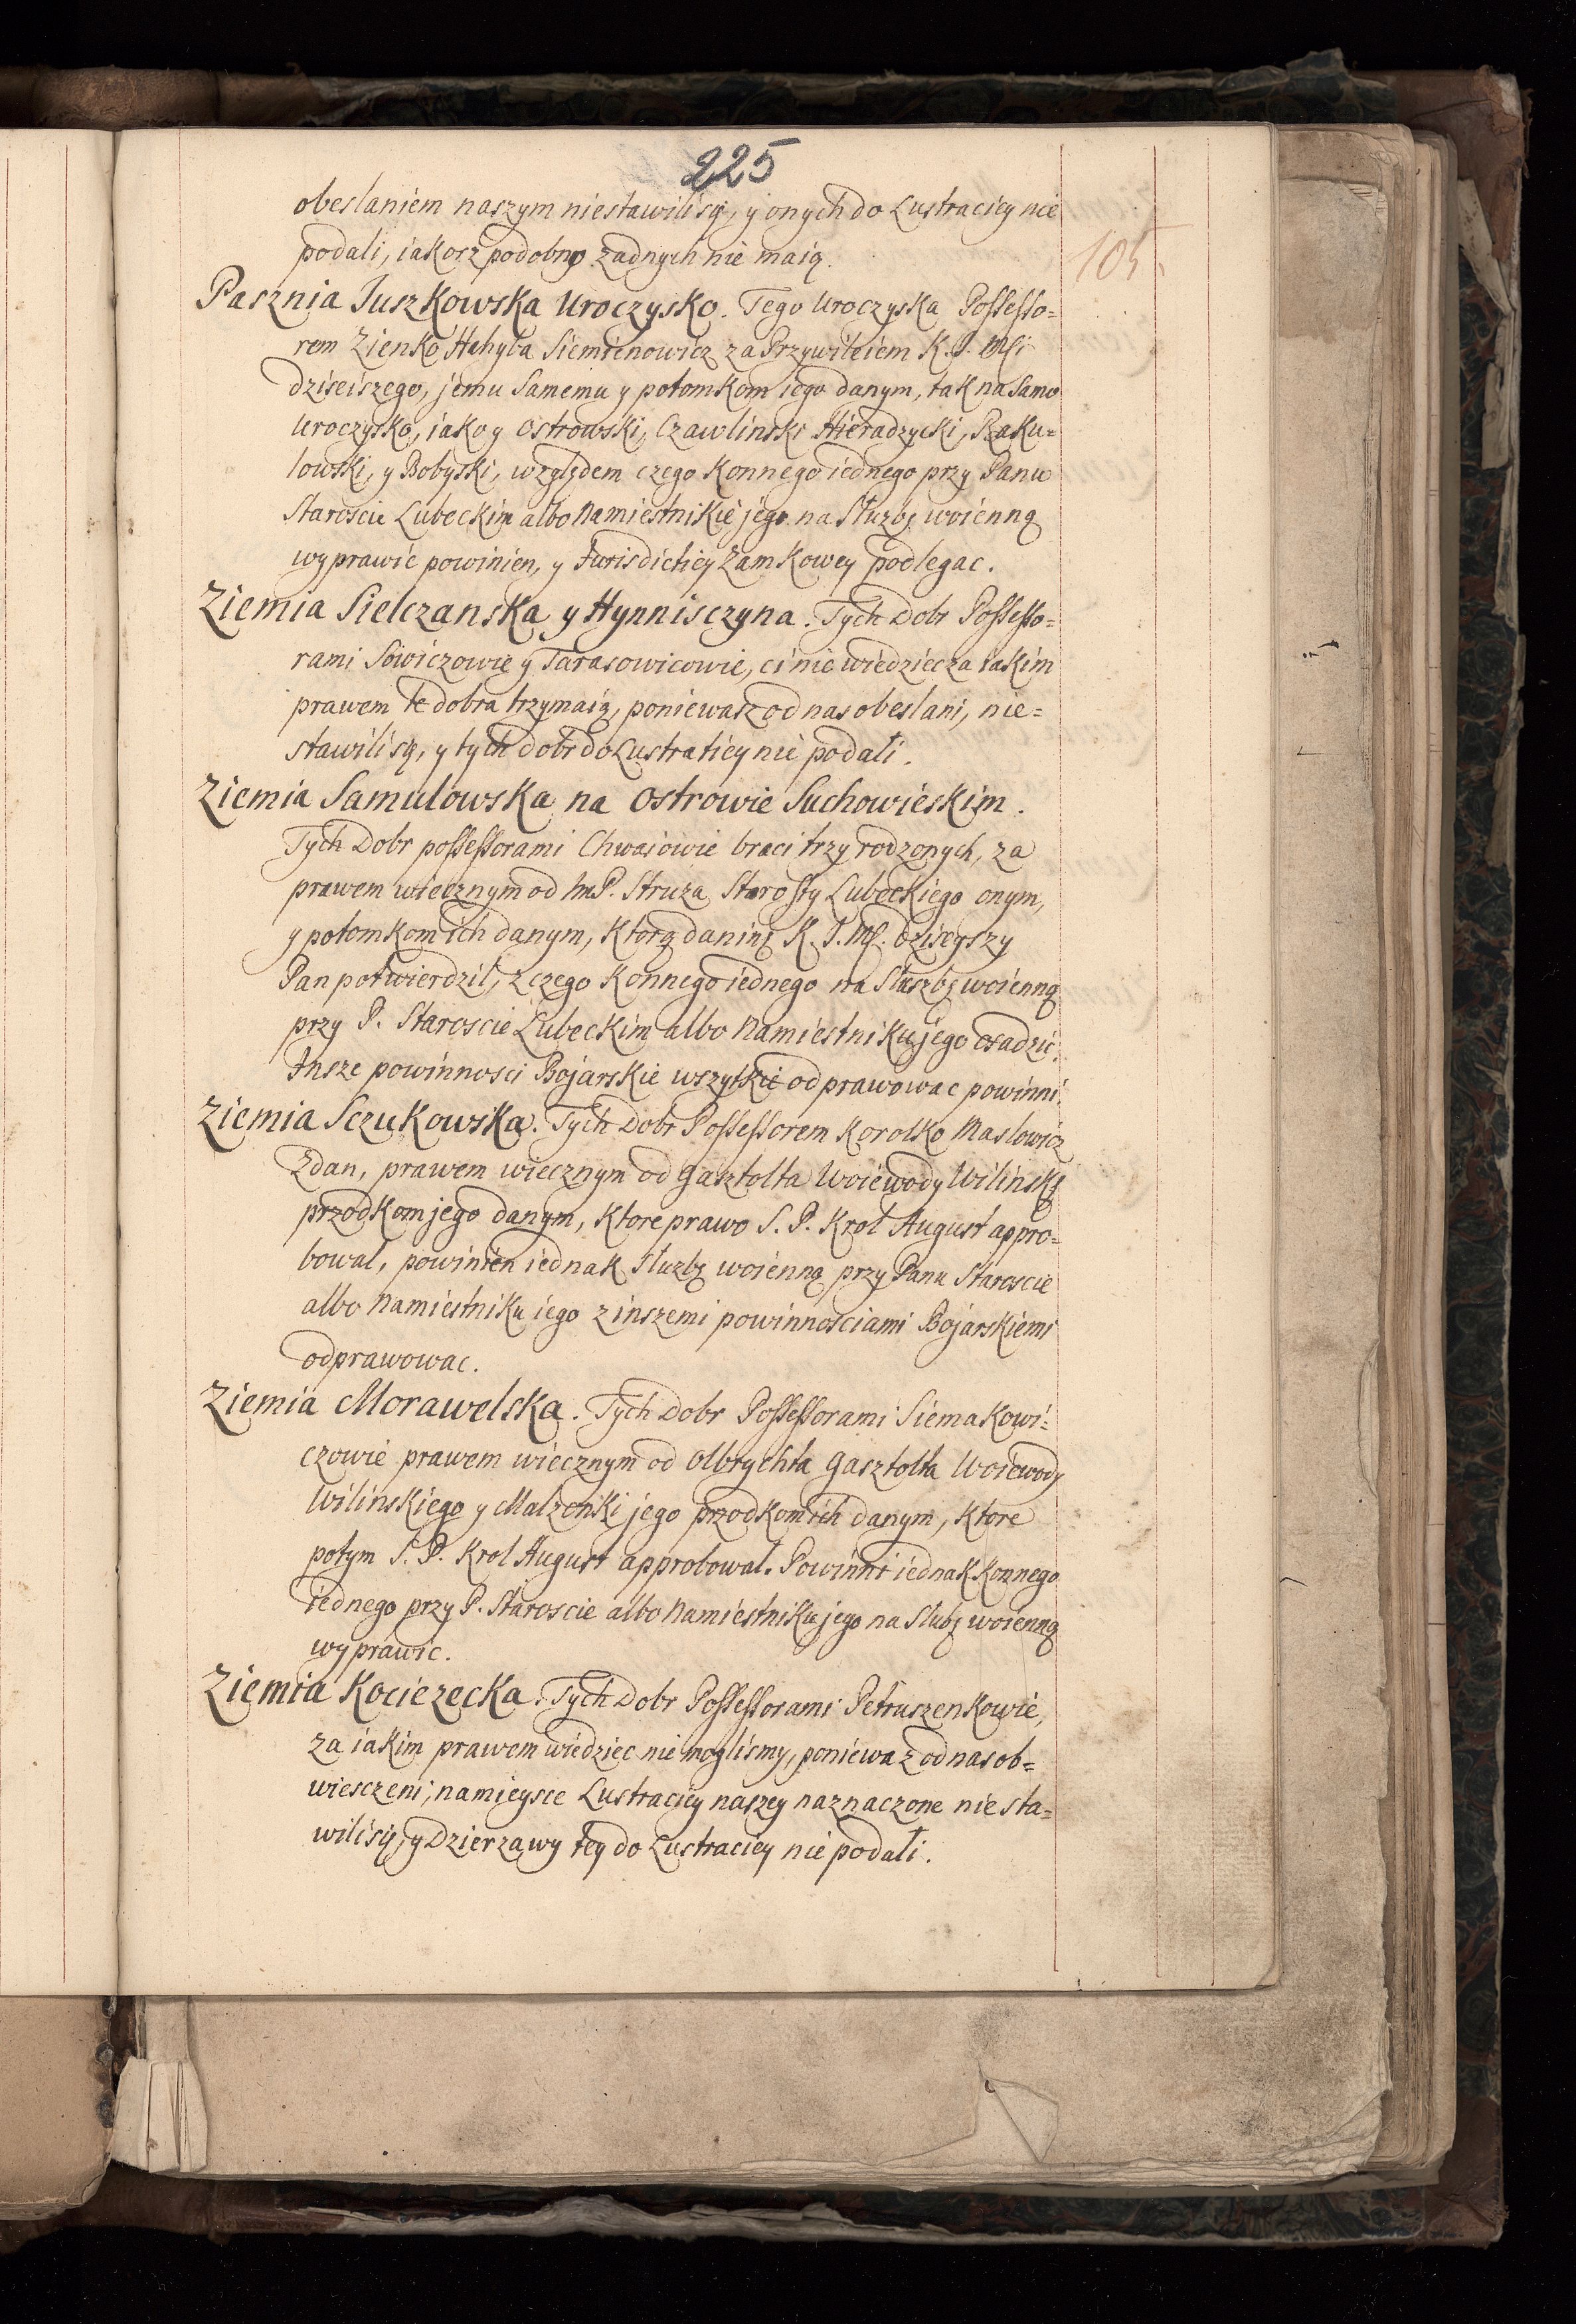 225
obeslaniem naszym niestawili się, y onych do Lustraciey nie
podali, iakosz podobno żadnych nie maią.
105
Pasznia Juszkowska Uroczysko. Tego Uroczyska Possesso=
rem Zienko Hehyla Siemienowicz za Przywileiem K. J. Msi
dzisieiszego, jemu Samemu y potomkom iego danym, tak na Samo
Uroczysko, iako y Ostrowski, Czawlinski Hieradzycki, Rzaku=
lowski, y Bobyski, względem czego Konnego iednego przy Panu
Staroscie Lubeckim albo Namiestnikie jego na Służbę woienną
wyprawić powinien, y Jurisdictiey Zamkowey podlegac.
Ziemia Sielczanska y Hynnisczyna. Tych Dobr Possesso=
rami Sowiczowie y Tarasowicowie, ci nie wiedziec za iakim
prawem te dobra trzymaią, poniewasz od nas obeslani, nie=
stawili się, y tych dobr do Lustratiey nie podali.
Ziemia Samulowska na Ostrowie Suchowieskim.
Tych Dobr possessorami Chwaiowie braci trzy rodzonych, za
prawem wiecznym od ImP. Struza Starosty Lubeckiego onym,
y potomkom ich danym, Ktorą daninę K. J. Mś. dzisieyszy
Pan potwierdzil, z czego Konnego iednego na Sluszbę woienną
przy P. Staroscie Lubeckim albo Namiestniku jego osadzic,
Insze powinnosci Bojarskie wszytkie odprawowac powinni.
Ziemia Sczukowska. Tych Dobr Possessorem Korolko Maslowicz
Zdan, prawem wiecznym od Gasztolta Woiewody Wilinskg
przodkom jego danym, Ktore prawo S. P. Krol August appro=
bowal, powinien iednak służbę woienną przy Panu Staroscie
albo Namiestniku iego z inszemi powinnosciami Bojarskiemi
odprawowac.
Ziemia Morawelska. Tych Dobr Possessorami Siemakowi=
czowie prawem wiecznym od Olbrychta Gasztolta Woiewody
Wilinskiego y Malzonki jego przodkom ich danym, Ktore
potym S. P. Krol August approbowal. Powinni iednak Konnego
iednego przy P. Staroscie albo Namiestniku jego na Slubę woienną
wyprawic.
Ziemia Kociezecka. Tych Dobr Possessorami Petruszenkowie,
za iakim prawem wiedziec nie moglismy, poniewaz od nas ob=
wiesczeni, na mieysce Lustraciey naszey naznaczone nie sta=
wili się, y Dzierzawy tey do Lustraciey nie podali.